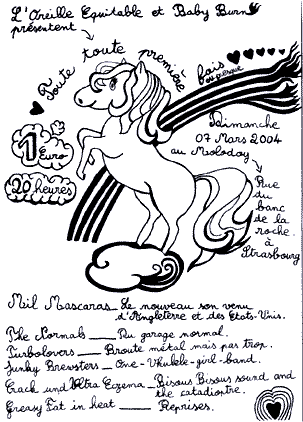 L'Oreille Equitable et Baby Burn
présentent
Toute toute première fois
ou presque
Dimanche
07 Mars 2004
au Molodoy
1 Euro
20 heures
Rue
du
banc
de la
roche
à
Strasbourg
Mil Mascaras Le nouveau son venu
d'Angleterre et des Etats-Unis.
The Normals ___ Du garage normal.
Turbolovers ___ Broute métal mais pas trop.
Junky Brewsters _ One-Ukulele-girl-band.
Crack und Ultra Eczema _ Bisous Bisous sound and
the catadioptre.
Greasy Fat in heat ___ Reprises.